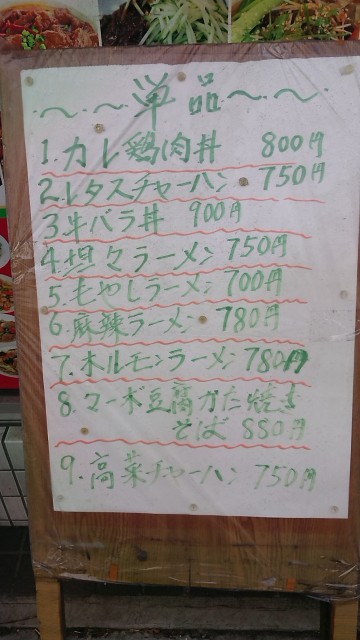 ～～単品～～
1.カレ鶏肉丼 800円
2.レタスチャーハン 750円
3.牛バラ丼 900円
4.坦々ラーメン 750円
5.もやしラーメン 700円
6.麻辣ラーメン 780円
7.ホルモンラーメン 780円
8.マーボ豆腐かた焼き
そば 880円
9.高菜チャーハン 750円